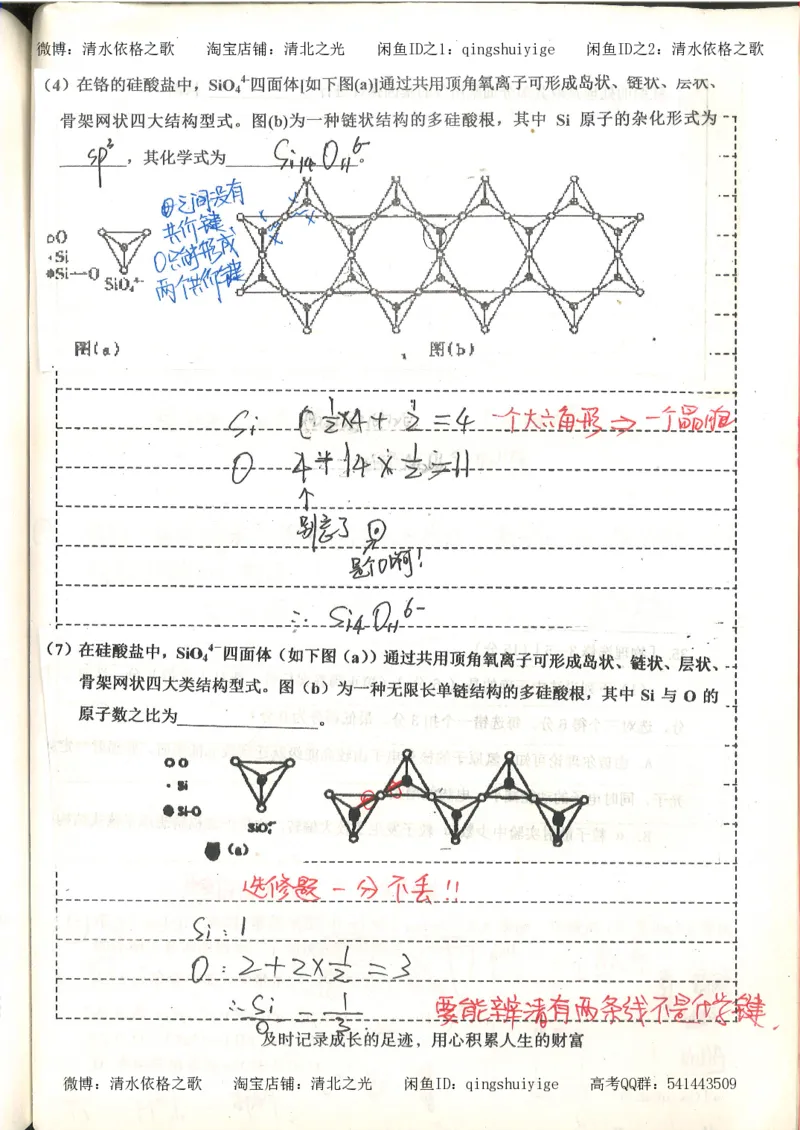 微博：清水依格之歌 淘宝店铺：清北之光 闲鱼ID之1：qingshuiyige 闲鱼ID之2：清水依格之歌
（4）在铬的硅酸盐中，SiO₄⁴⁻四面体[如下图(a)]通过共用顶角氧离子可形成岛状、链状、层状、
骨架网状四大结构型式。图(b)为一种链状结构的多硅酸根，其中 Si 原子的杂化形式为
sp³，其化学式为 Si4O11⁶⁻。
之间没有
共价键，
O只能形成
两个共价键
○O
·Si
Si—O
SiO₄⁴⁻
图(a)
图(b)
Si ½×4+½=4 一个大六角形⇒一个晶胞
O 4+14×½=11
↑
别忘了
∴ Si4O11⁶⁻
（7）在硅酸盐中，SiO₄⁴⁻四面体（如下图（a））通过共用顶角氧离子可形成岛状、链状、层状、
骨架网状四大类结构型式。图（b）为一种无限长单链结构的多硅酸根，其中 Si 与 O 的
原子数之比为 。
○O
·Si
Si-O
SiO₄⁴⁻
(a)
选修题一分不丢!!
Si：1
O：2+2×½=3
∴Si/O=1/3.
要能辨清有两条线不是化学键.
及时记录成长的足迹，用心积累人生的财富
微博：清水依格之歌 淘宝店铺：清北之光 闲鱼ID：qingshuiyige 高考QQ群：541443509